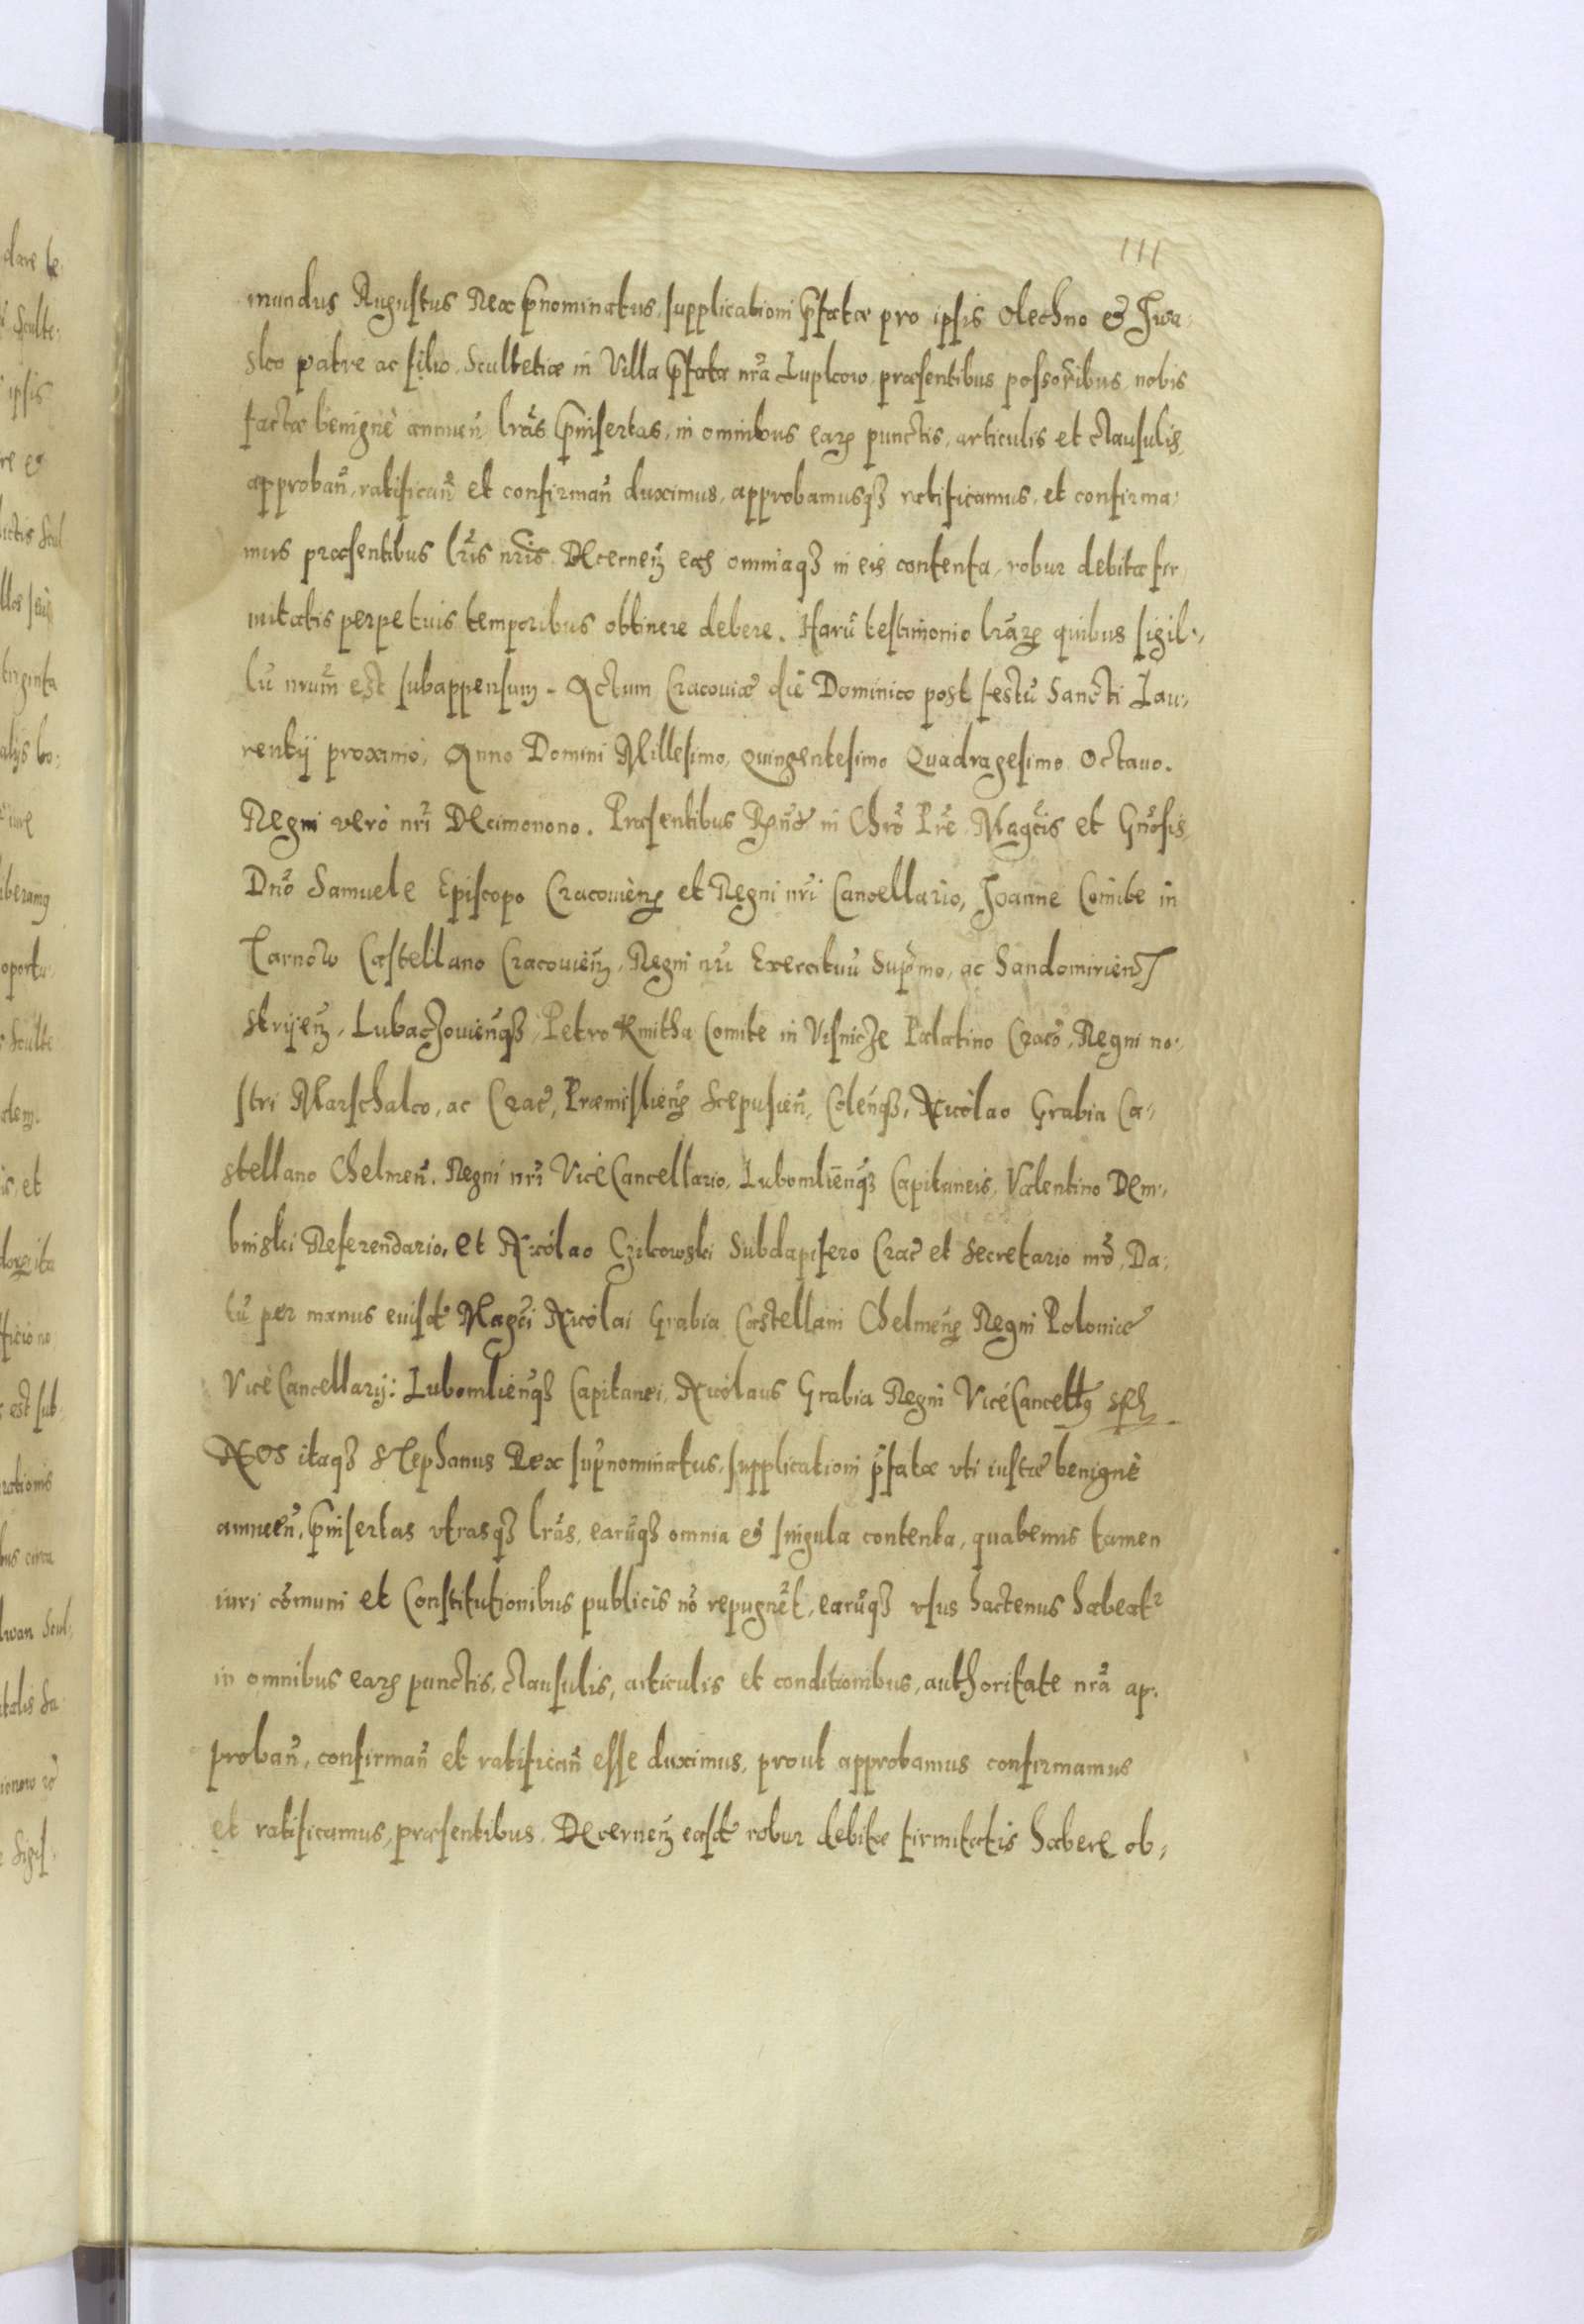 111
mundus Augustus Rex p̄nominatus, supplicationi p̄fatæ pro ipsis Olechno & Iwa-
sko patre ac filio, Scultetiæ in Villa p̄fata nr̃a Lupkow, præsentibus possor̃ibus, nobis
factæ benignè annuen̄ lr̃as p̄insertas, in omnibus earꝝ punctis, articulis et clausulis,
approban̄, ratifican̄ et confirman̄ duximus, approbamusqꝫ ratificamus, et confirma-
mus præsentibus lr̃is nr̃is. Decernen̄ eas omniaqꝫ in eis contenta, robur debitæ fir-
mitatis perpetuis temporibus obtinere debere. Harū testimonio lr̃arꝝ quibus sigil-
lū nr̃um est subappensum. Actum Cracouiæ die Dominico post festū Sancti Lau-
rentij proximo, Anno Domini Millesimo, Quingentesimo Quadragesimo Octauo.
Regni verò nr̃i Decimonono. Præsentibus Rñd in Chr̃o Pr̃e Magcis et Gñosis
Dño Samuele Episcopo Cracouieñ et Regni nr̃i Cancellario, Joanne Comite in
Tarnow Castellano Cracouien̄, Regni nr̃i Exercituū Sup̄mo, ac Sandomirien̄
Strijen̄, Lubaczouien̄qꝫ, Petro Kmitha Comite in Visnicze Palatino Crac̄, Regni no-
stri Marschalco, ac Crac̄, Præmislien̄ Scepusien̄, Colen̄qꝫ, Nicolao Grabia Ca-
stellano Chelmen̄. Regni nr̃i ViceCancellario, Lubomlien̄qꝫ Capitaneis, Valentino Dem-
binski Referendario, et Nicolao Czikowski Subdapifero Crac̄ et Secretario nr̃o, Da-
tū per manus eiusd Magci Nicolai Grabia Castellani Chelmen̄ Regni Poloniæ
ViceCancellarij: Lubomlien̄qꝫ Capitanei, Nicolaus Grabia Regni ViceCancellꝰ sst
Nos itaqꝫ Stephanus Rex sup̄nominatus, supplicationi p̄fatæ vti iustæ benignè
annuen̄, p̄insertas vtrasqꝫ lr̃as, earūqꝫ omnia & singula contenta, quatenus tamen
iuri cōmuni et Constitutionibus publicis nō repugnēt, earūqꝫ vsus hactenus habeatʳ
in omnibus earꝝ punctis, clausulis, articulis et conditionibus, authoritate nr̃a ap-
proban̄, confirman̄ et ratifican̄ esse duximus, prout approbamus confirmamus
et ratificamus, præsentibus. Decernen̄ easd robur debitæ firmitatis habere ob-